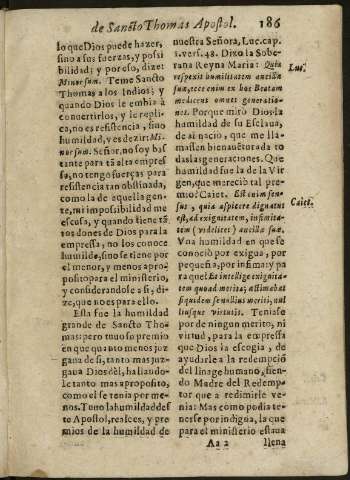 de Sancto Thomas Apostol. 186
lo que Dios puede hazer,
sino a sus fuerzas, y possi
bilidad; y por eso, dize:
Minor sum. Teme Sancto
Thomas a los Indios; y
quando Dios le embia à
convertirlos, y le repli-
ca, no es resistencia, sino
humildad, ves dezir: Mi-
nor sum. Señor, no soy bas
tante para tā alta empres
sa, no tengo fuerças para
resistencia tan obstinada,
como la de aquella gen-
te, mi impossibilidad me
escusa, y quando tiene tā
tos dones de Dios para la
empressa, no los conoce
humilde, sino se tiene por
el menor, y menos apro-
posito para el ministerio,
y considerandose assi, di-
ze, que no es para ello.
Esta fue la humildad
grande de Sancto Tho-
mas: pero tuuo su premio
en que quanto menos juz
gaua de si, tanto mas juz-
gaua Dios dèl, hallando-
le tanto mas aproposito,
como el se tenia por me-
nos. Tuuo la humildad des
te Apostol, realces, y pre
mios de la humildad de
nuestra Señora, Luc. cap.
1. vers. 48. Dixo la Sobe-
rana Reyna Maria: Quia
respexit humilitatem ancillæ
suæ, ecce enim ex hoc Beatam
me dicent omnes generatio-
nes. Porque mirò Dios la
humildad de su Esclaua,
de ai naciò, que me lla-
massen bienauēturada to
das las generaciones. Que
humildad fue la de la Vir
gen, que mereciò tal pre-
mio? Caiet. Est enim sen-
sus, quia aspicere dignatus
est, ad exignitatem, infimita-
tem (videlicet) ancillæ suæ.
Vna humildad en que se
conociò por exigua, por
pequeña, por infima: y pa
ra què? Et intellige exignita-
tem quoad merita; æstimabat
siquidem se nullius meriti, nul
liusque virtutis. Teniase
por de ningun merito, ni
virtud, para la empressa
que Dios la escogia, de
ayudarle a la redempciō
del linage humano, sien-
do Madre del Redemp-
tor que a redimirle ve-
nia: Mas como podia te-
nerse por indigna, la que
para el ministerio estaua
Luc.
Caiet.
Aa 2 llena